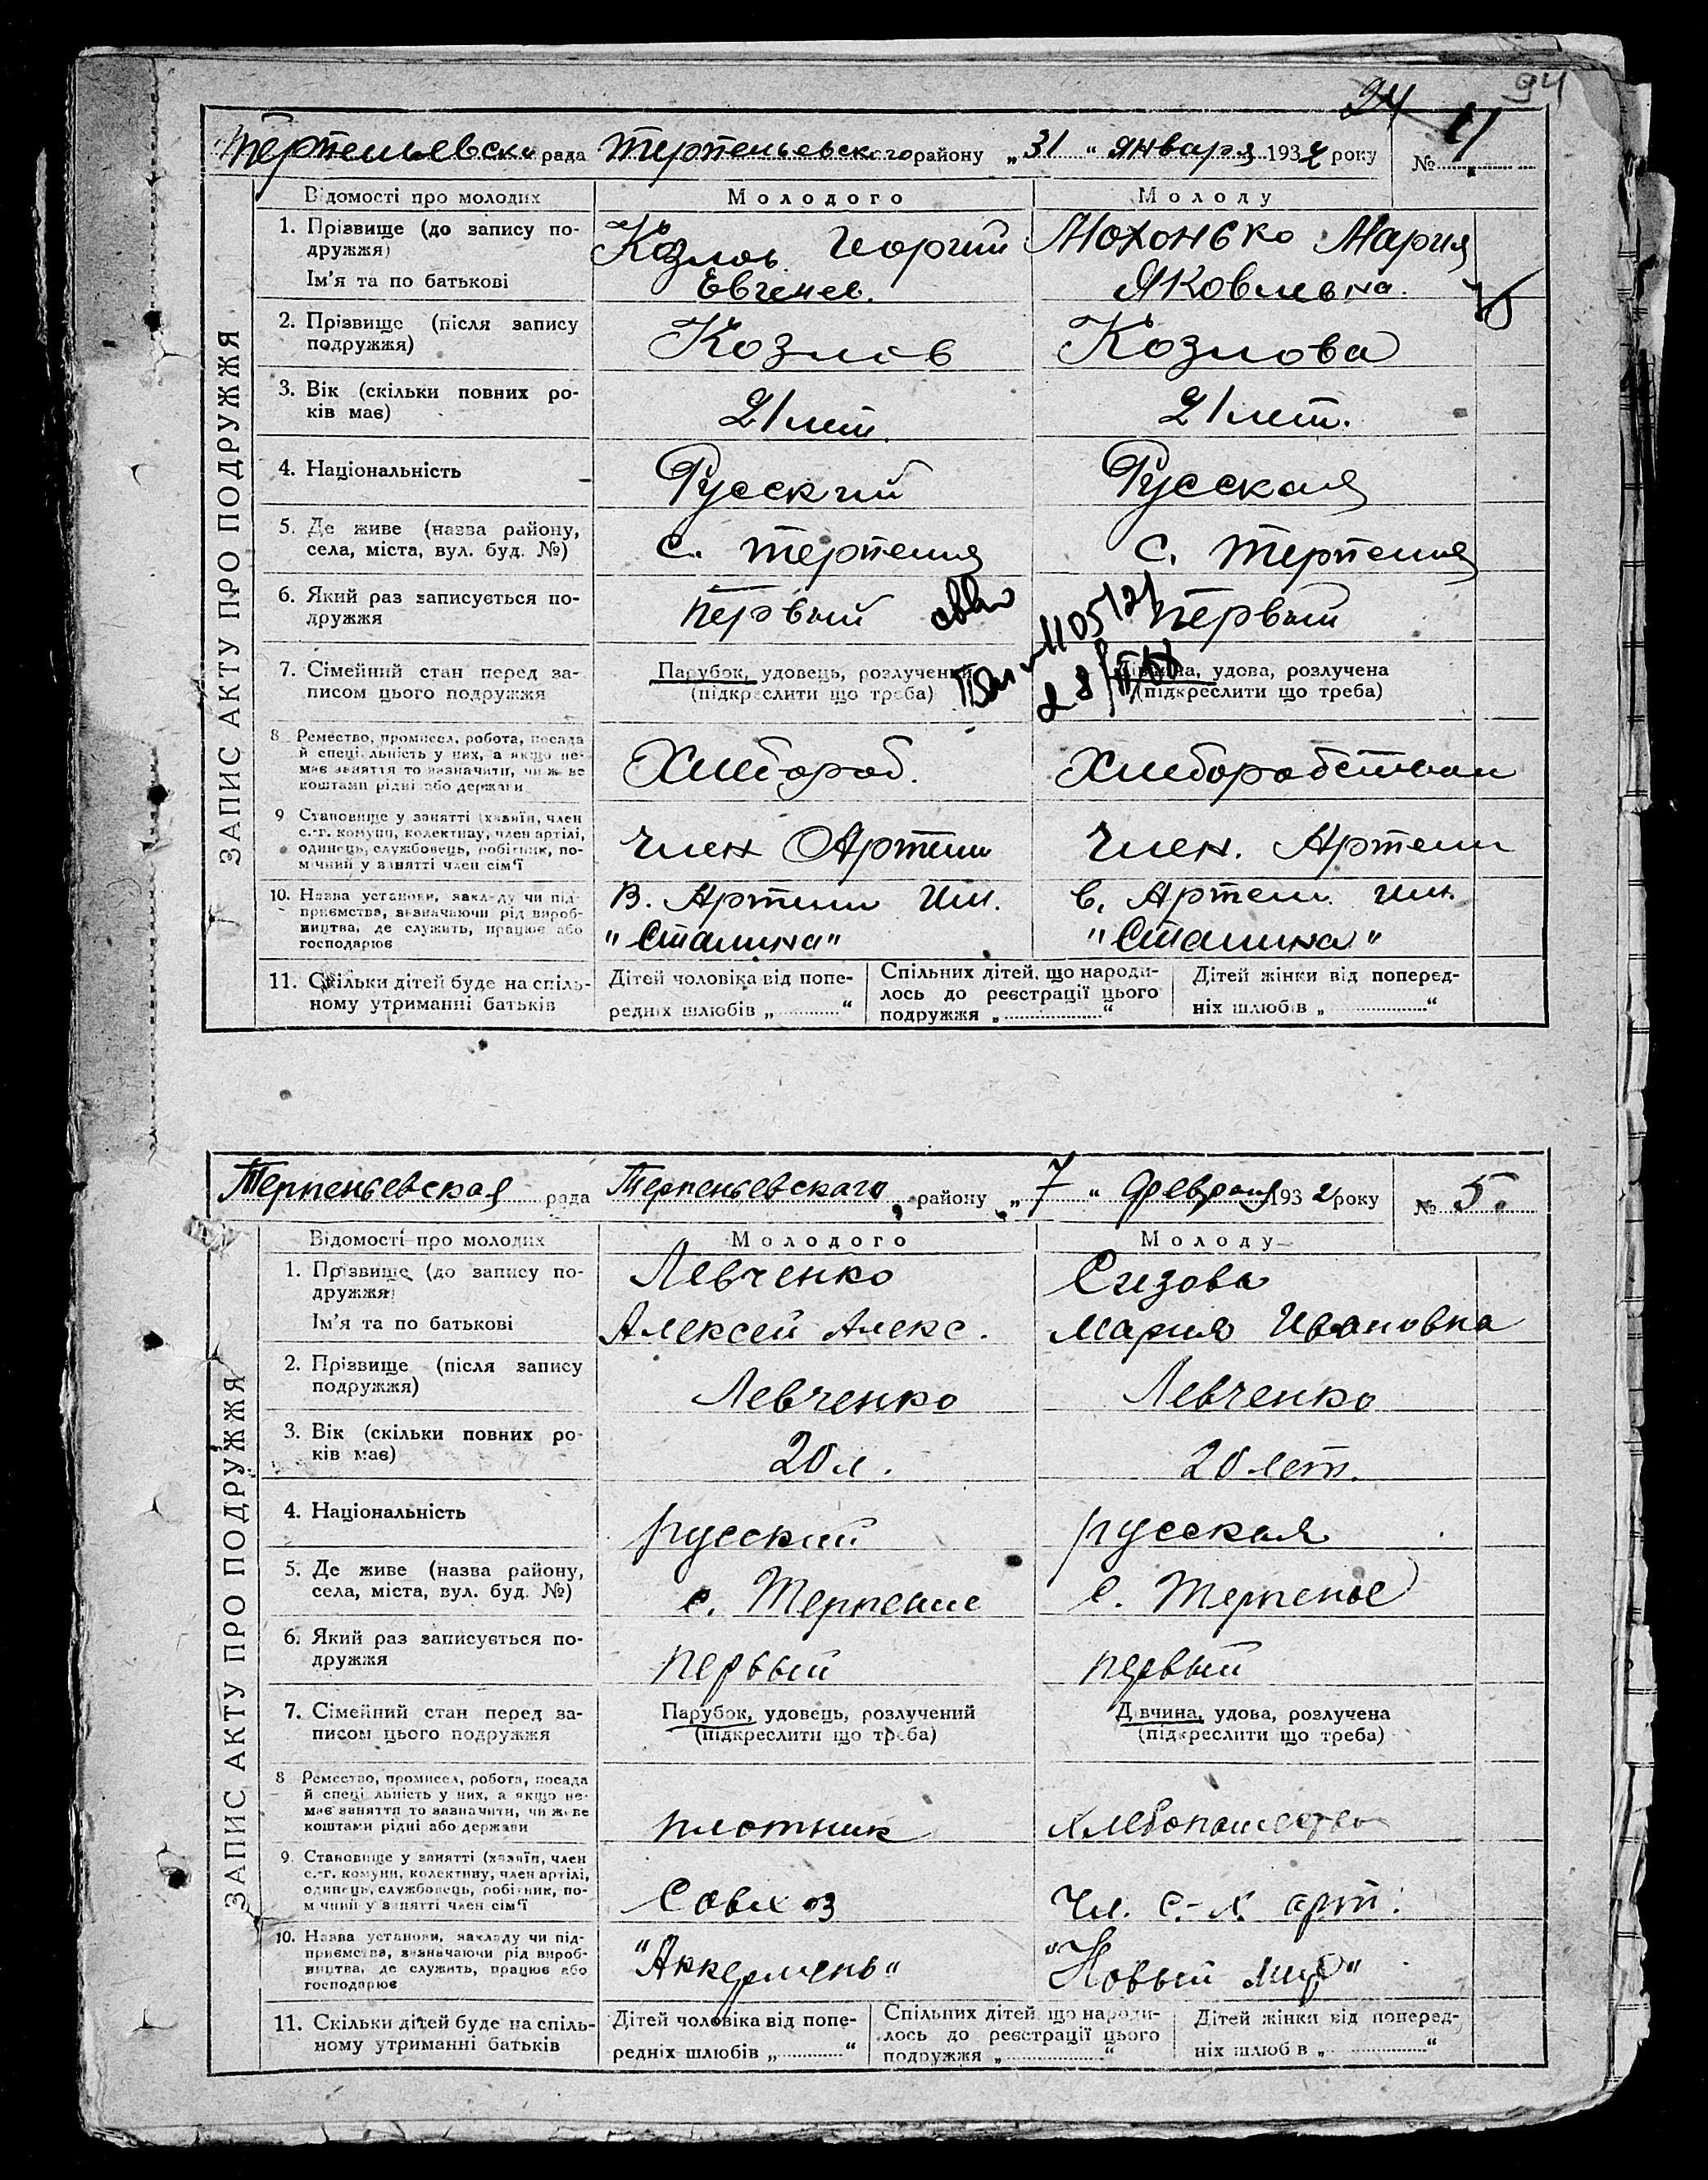 94
24
Терпеньевска рада Терпеньевского району „31“ января 1932 року № 4
Відомості про молодих Молодого Молоду
1. Прізвище (до запису по-
дружжя)
Ім'я та по батькові
Козлов Георгий
Евгенев.
Мохонько Мария
Яковлевна.
2. Прізвище (після запису
подружжя)
Козлов
Козлова
3. Вік (скільки повних ро-
ків має)
21 лет.
21 лет.
4. Національність
Русский
Русская
5. Де живе (назва району,
села, міста, вул. буд. №)
с. Терпения
с. Терпения
6. Який раз записується по-
дружжя
Первый
Первый
7. Сімейний стан перед за-
писом цього подружжя
Парубок, удовець, розлучений
(підкреслити що треба)
Дівчина, удова, розлучена
(підкреслити що треба)
8 Ремество, промисел, робота, посада
й спеціальність у них, а якщо не-
має заняття то зазначити, чи живе
коштами рідні або держави
Хлебороб.
9 Становище у занятті (хазяїн, член
с.-г. комуни, колективу, член артілі,
одинець, службовець, робітник, по-
мічний у занятті член сім'ї
Член Артели
Член. Артели
10. Назва установи, закладу чи під-
приємства, визначаючи рід вироб-
ництва, де служить, працює або
господарює
В. Артели им.
"Сталина"
в. Артели им.
"Сталина"
11. Скільки дітей буде на спіль-
ному утриманні батьків
Дітей чоловіка від попе-
редніх шлюбів „ “
Спільних дітей, що народи-
лось до реєстрації цього
подружжя „ “
Дітей жінки від поперед-
ніх шлюбів „ “
ЗАПИС АКТУ ПРО ПОДРУЖЖЯ
Терпеньевская рада Терпеньевскаго району „7“ Февраля 1932 року № 5.
Відомості про молодих Молодого Молоду
1. Прізвище (до запису по-
дружжя)
Ім'я та по батькові
Левченко
Алексей Алекс.
Сизова
Мария Ивановна
2. Прізвище (після запису
подружжя)
Левченко
Левченко
3. Вік (скільки повних ро-
ків має)
20 л.
20 лет.
4. Національність
русский
русская
5. Де живе (назва району,
села, міста, вул. буд. №)
с. Терпение
с. Терпенье
6. Який раз записується по-
дружжя
первый
первый
7. Сімейний стан перед за-
писом цього подружжя
Парубок, удовець, розлучений
(підкреслити що треба)
Дівчина, удова, розлучена
(підкреслити що треба)
8 Ремество, промисел, робота, посада
й спеціальність у них, а якщо не-
має заняття то зазначити, чи живе
коштами рідні або держави
плотник
хлебопашество
9. Становище у занятті (хазяїн, член
с.-г. комуни, колективу, член артілі,
одинець, службовець, робітник, по-
мічний у занятті член сім'ї
Совхоз
Чл. с.-х. арт.
10. Назва установи, закладу чи під-
приємства, визначаючи рід вироб-
ництва, де служить, працює або
господарює
"Аккермень"
"Новый мир"
11. Скільки дітей буде на спіль-
ному утриманні батьків
Дітей чоловіка від попе-
редніх шлюбів „ “
Спільних дітей що народи-
лось до реєстрації цього
подружжя „ “
Дітей жінки від поперед-
ніх шлюбів „ “
ЗАПИС АКТУ ПРО ПОДРУЖЖЯ